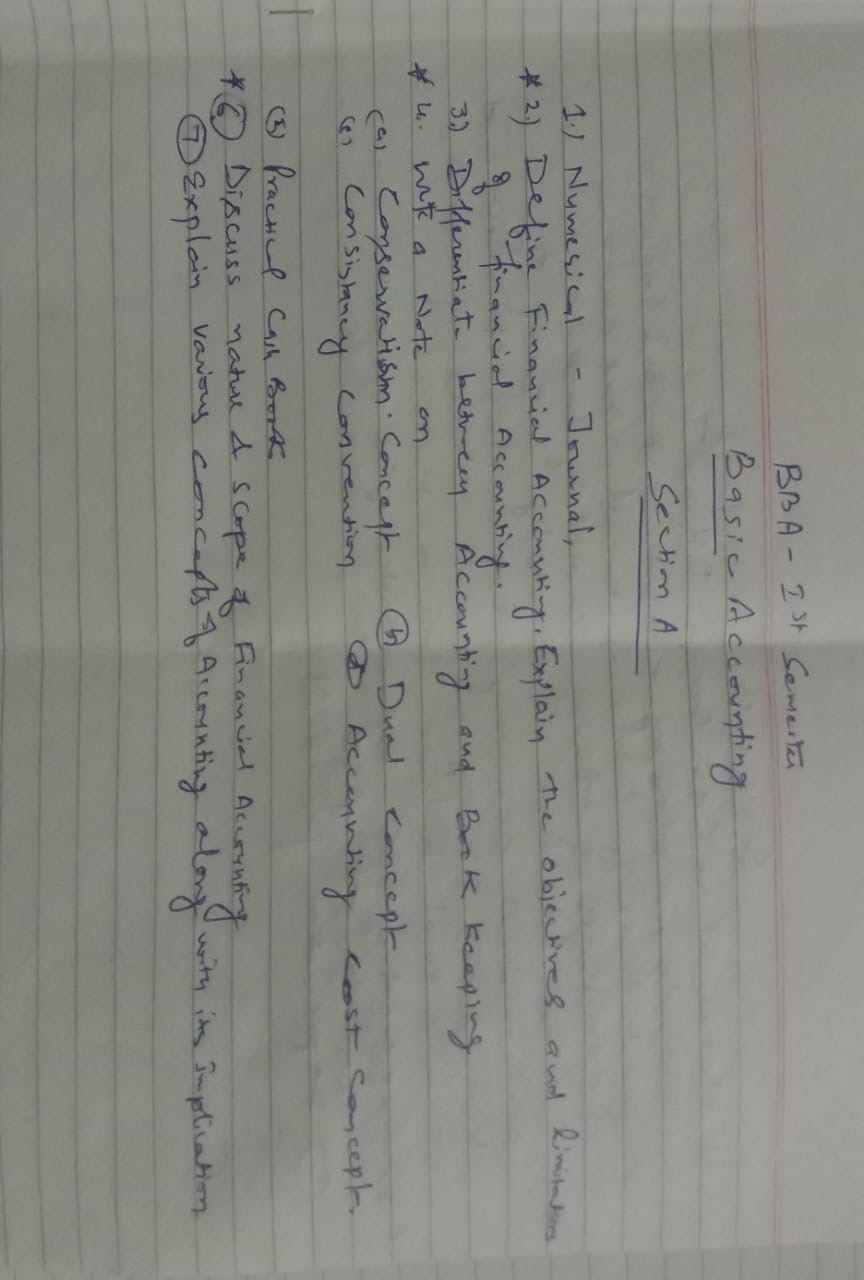 BBA - Ist Semester
Basic Accounting
Section A
1.) Numerical - Journal,
* 2.) Define Financial Accounting. Explain the objectives and limitations
of financial Accounting.
3.) Differentiate between Accounting and Book Keeping
* 4. write a Note on
(a) Conservatism Concept (b) Dual Concept
(c) Consistancy Convention (d) Accounting Cost Concept.
(5) Practical Cash Book
* (6) Discuss nature & scope of Financial Accounting
(7) Explain various concepts of Accounting along with its implication